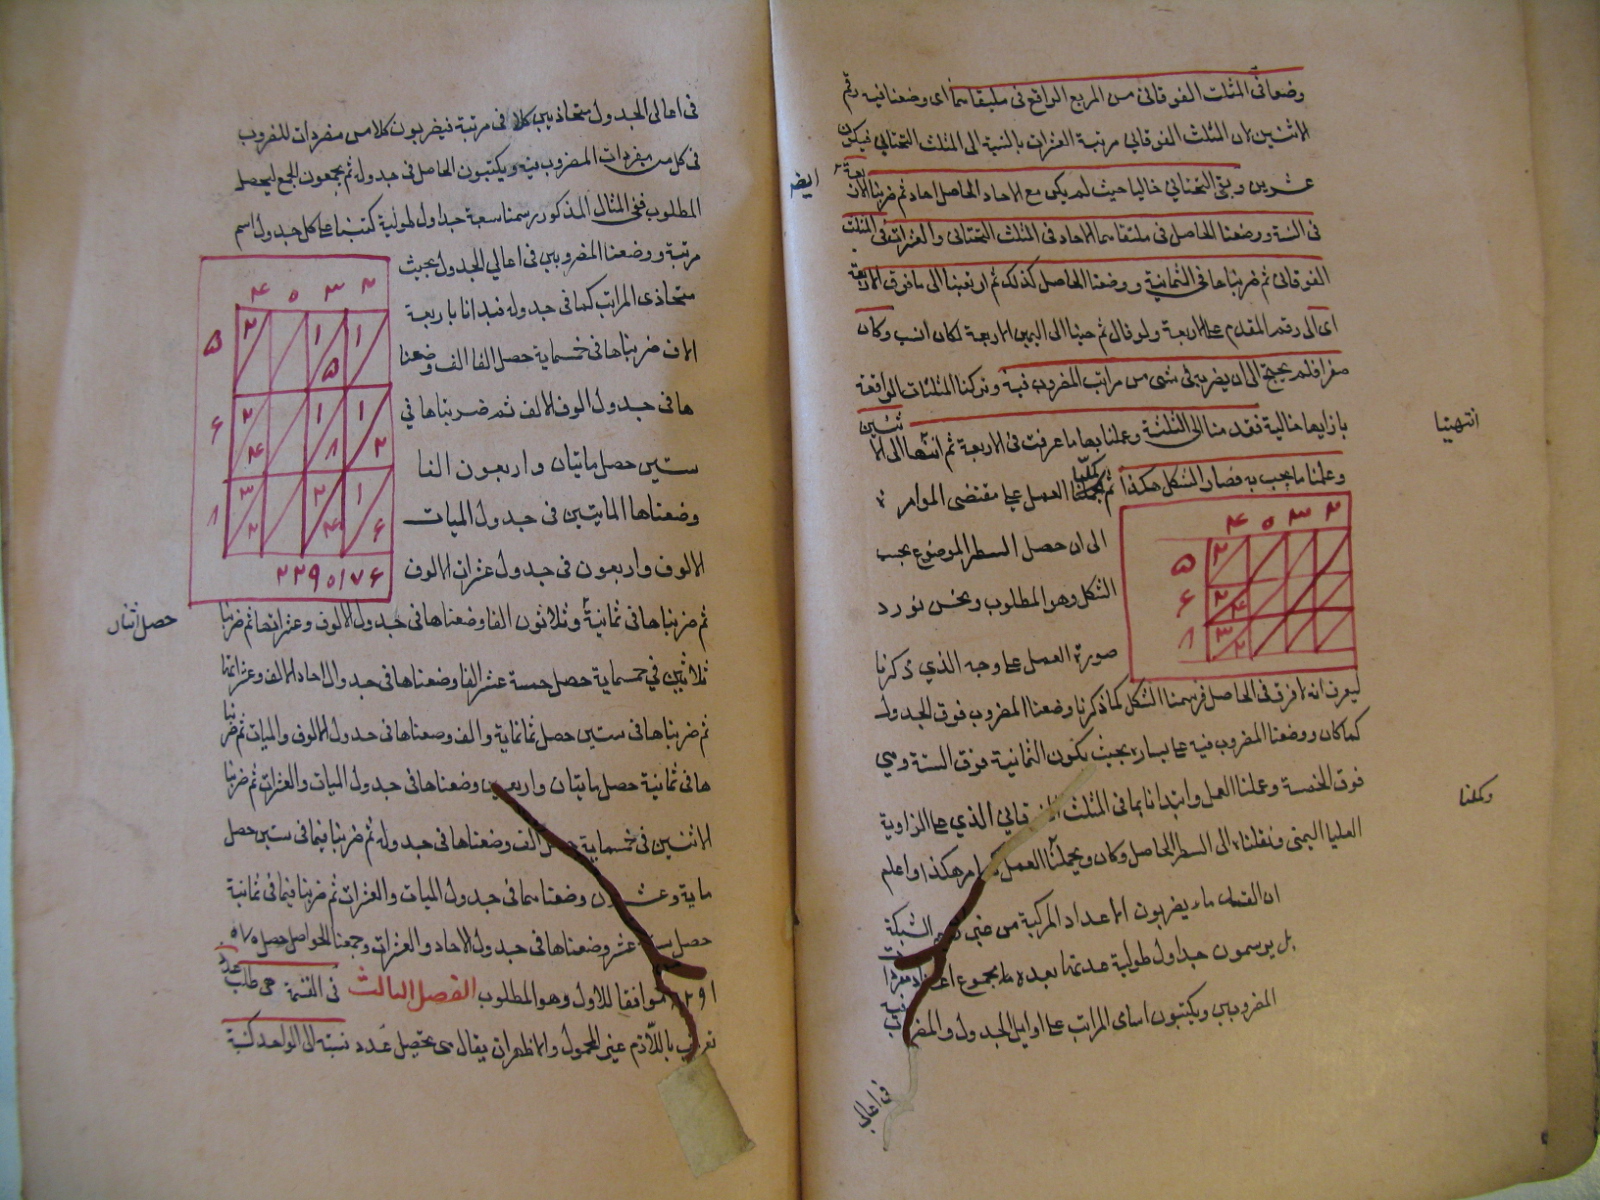 وضعا في المثلث الفوقاني من المربع الواقع في ملتقاهما اى وضعنا فيه رقم
الاثنين لان المثلث الفوقاني مرتبة العشرات بالنسبة الى المثلث التحتاني فيكون
عشرين وبقى التحتاني خاليا حيث لم يكن مع الاحاد الحاصل احاد ثم ضربنا الاربعة
ايضا
في الستة ووضعنا الحاصل في ملتقاهما الاحاد في المثلث التحتاني والعشرات في المثلث
الفوقاني ثم ضربناها في الثمانية ووضعنا الحاصل كذلك ثم ارتقينا الى ما فوق الاربعة
اى الى رقم المقدم على الاربعة ولو قال ثم جئنا الى اليمين الاربعة لكان انسب وكان
صفرا فلم يحتج الى ان يضرب في شئ من مراتب المضروب فيه وتركنا المثلثات الواقعة
بازايها خالية فقدمنا الى الثلثة وعملنا بها ما عرفت في الاربعة ثم انتهينا الى الاثنين
انتهينا
وعملنا ما يجب به فصار الشكل هكذا ثم كملنا العمل على مقتضى الموامر
الى ان حصل السطر الموضوع بجنب
الشكل وهو المطلوب ونحن نورد
صورة العمل على وجه الذي ذكرنا
۴ ۰ ۳ ۲
۵ ۲
۶ ۲ ۴
۸ ۳ ۲
ليعرف انه لا فرق في الحاصل فرسمنا الشكل كما ذكرنا وضعنا المضروب فوق الجدول
كما كان ووضعنا المضروب فيه على يساره بحيث يكون الثمانية فوق الستة وهي
فوق الخمسة وعملنا العمل وابتدانا بما في المثلث الفوقاني الذي على الزاوية
وكملنا
العليا اليمنى ونقلناه الى السطر الحاصل وكان وكملنا العمل كما مر هكذا واعلم
ان القدماء يضربون الاعداد المركبة من غير الشبكة
بل يرسمون جداول طولية عدتها بعدة مجموع
المضروبين ويكتبون اسامى المراتب على اوايل الجدول والمضروبين
في اعالى
في اعالى الجدول متحاذيين كلا في مرتبة فيضربون كلا من مفردات المضروب
في كل من مفردات المضروب فيه ويكتبون الحاصل في جدوله ثم يجمعون الجمع ليحصل
المطلوب ففى المثال المذكور رسمنا سبعة جداول طولية كتبنا على كل جدول اسم
مرتبة ووضعنا المضروبين في اعالي الجدول بحيث
متحاذى المراتب كما في جدوله فبدانا باربعة
الاف ضربناها في خمسماية حصل الفا الف وضعنا
ها في جدول الوف الالف ثم ضربناها في
ستين حصل مايتان واربعون الفا
وضعناها المايتين في جدول الميات
الالوف واربعون في جدول عشرات الالوف
۴ ۰ ۳ ۲
۵ ۲ ۱ ۵ ۱
۶ ۲ ۴ ۱ ۸ ۱ ۲
۸ ۳ ۲ ۲ ۴ ۱ ۶
۲۲۹۰۱۷۶
ثم ضربناها في ثمانية وثلاثون الفا وضعناها في جدول الالوف وعشراتها ثم ضربنا
حصل اثنان
ثلاثين في خمسماية حصل خمسة عشر الفا وضعناها في جدول احاد الالف وعشراتها
ثم ضربناها في ستين حصل ثمانماية والف وضعناها في جدول الالوف والميات ثم ضربنا
ها في ثمانية حصل مايتان واربعين وضعناها في جدول الميات والعشرات ثم ضربنا
الاثنين في خمسماية حصل الف وضعناها في جدوله ثم ضربنا فيما في ستين حصل
ماية وعشرون وضعناهما في جدول الميات والعشرات ثم ضربنا فيما في ثمانية
حصل ستة عشر وضعناها في جدول الاحاد والعشرات وجمعنا الحواصل حصل
موافقا للاول وهو المطلوب الفصل الثالث في القسمة هي طلب عدد
باللازم غير المحمول والاظهر ان يقال هى تحصيل عدد نسبته الى الواحد كنسبة